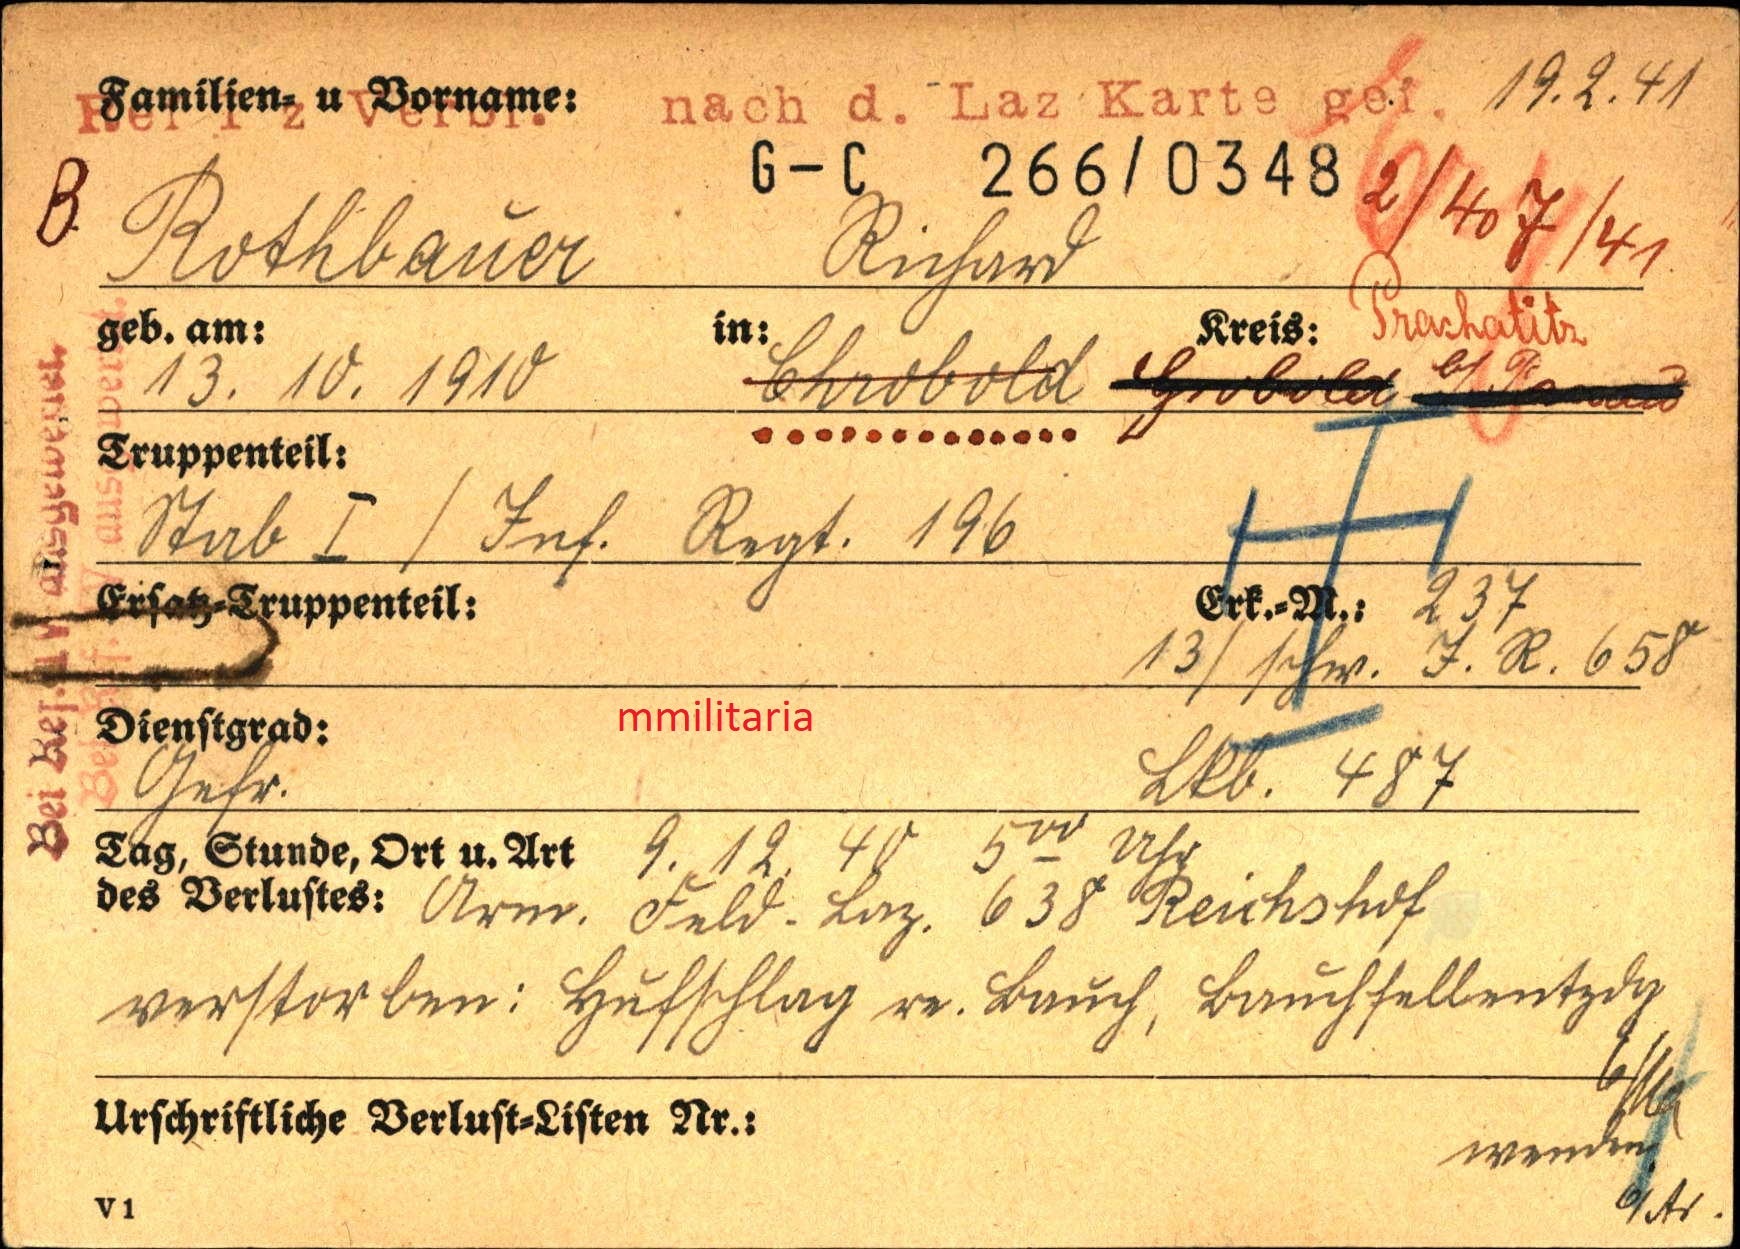 Familien- u Vorname:
nach d. Laz Karte gef. 19.2.41
G-C 266/0348 2/407/41
B.
Rothbauer Richard
geb. am: in: Kreis: Prachatitz
13. 10. 1910 Chrobold Grobold b/
Truppenteil:
Stab I / Inf. Regt. 196
Ersatz-Truppenteil: Erk.-M.: 237
13/ schw. I. R. 658
Dienstgrad:
mmilitaria
Gefr. Lkb. 487
Tag, Stunde, Ort u. Art 9. 12. 40 5 00 Uhr
des Verlustes: Arm. Feld-Laz. 638 Reichshof
verstorben: Hufschlag re. Bauch, Bauchfellentzdg
Urschriftliche Verlust-Listen Nr.:
wenden
V 1
Bei Ref. ausgewertet.